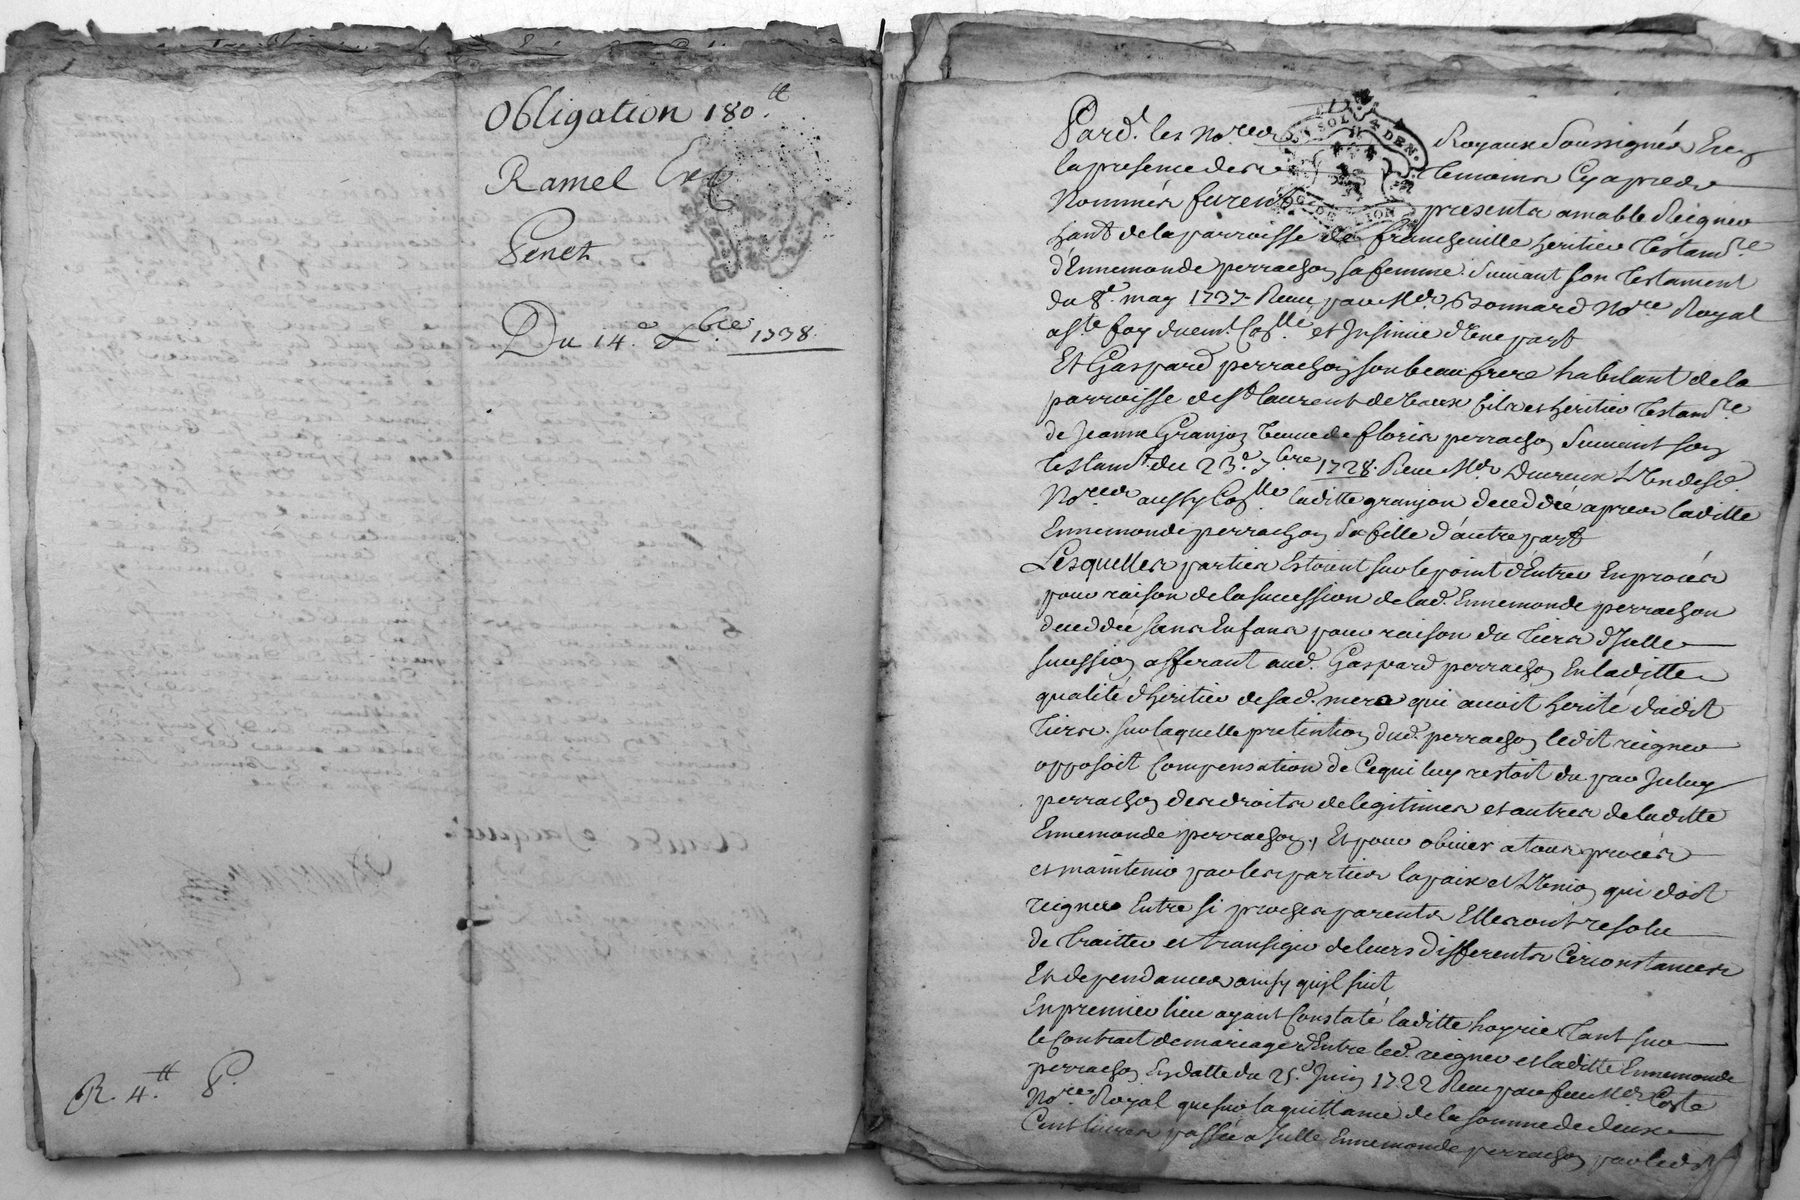 Obligation 180.tt
Ramel
Penet
Du 14.e xbre. 1738.
R. 4.tt P.
SOL 4 DEN.
Pard.t les Nores Royaux Soussignés Et en
la presence des Temoins Cy apres
Nommés furent presents amable Reignier
habt de la parroisse de francheville heritier Testam.re
d'Ennemonde perrachon sa femme suivant son Testament
du 8.e may 1737 Receu par Me Bonnard Nore Royal
a Ste foy duemt Coll.é et Insinué d'Une part
Et Gaspard perrachon son beaufrere habitant de la
parroisse de St laurent de Vaux fils et heritier Testam.re
de Jeanne Granjon Veuve de floris perrachon suivant son
testamt. du 23.e 7bre 1728. Receu Me Ducreux
Nores aussy Coll.é laditte granjon deceddée apres laditte
Ennemonde perrachon sa fille d'autre part
Lesquelles parties Estoient sur le point d'Entrer En procès
pour raison de la succession de lad. Ennemonde perrachon
deceddée sans Enfans pour raison du tiers d'Jcelle
succession afferant aud. Gaspard perrachon En laditte
qualité d'heritier de sad. mere qui avoit herité dudit
tiers. sur laquelle pretention dud. perrachon ledit reignier
opposoit Compensation de Ce qui luy restoit du par Jceluy
perrachon des droits de legitimes et autres de laditte
Ennemonde perrachon, Et pour obvier a tous procès
et maintenir par les parties la paix et l'Union qui doit
reigner Entre si proches parents Elles ont resolu
de traitter et transiger de leurs differents Circonstances
Et dependances ainsy qu'il suit
En premier lieu ayant Constaté laditte hoyrie tant sur
le Contract de mariage d'Entre led. reignier et laditte Ennemonde
perrachon En datte du 25.e Juin 1722 Receu par feu Me Coste
Nore Royal que sur la quittance de la somme de deux
Cent livres passée a Jcelle Ennemonde perrachon par ledit